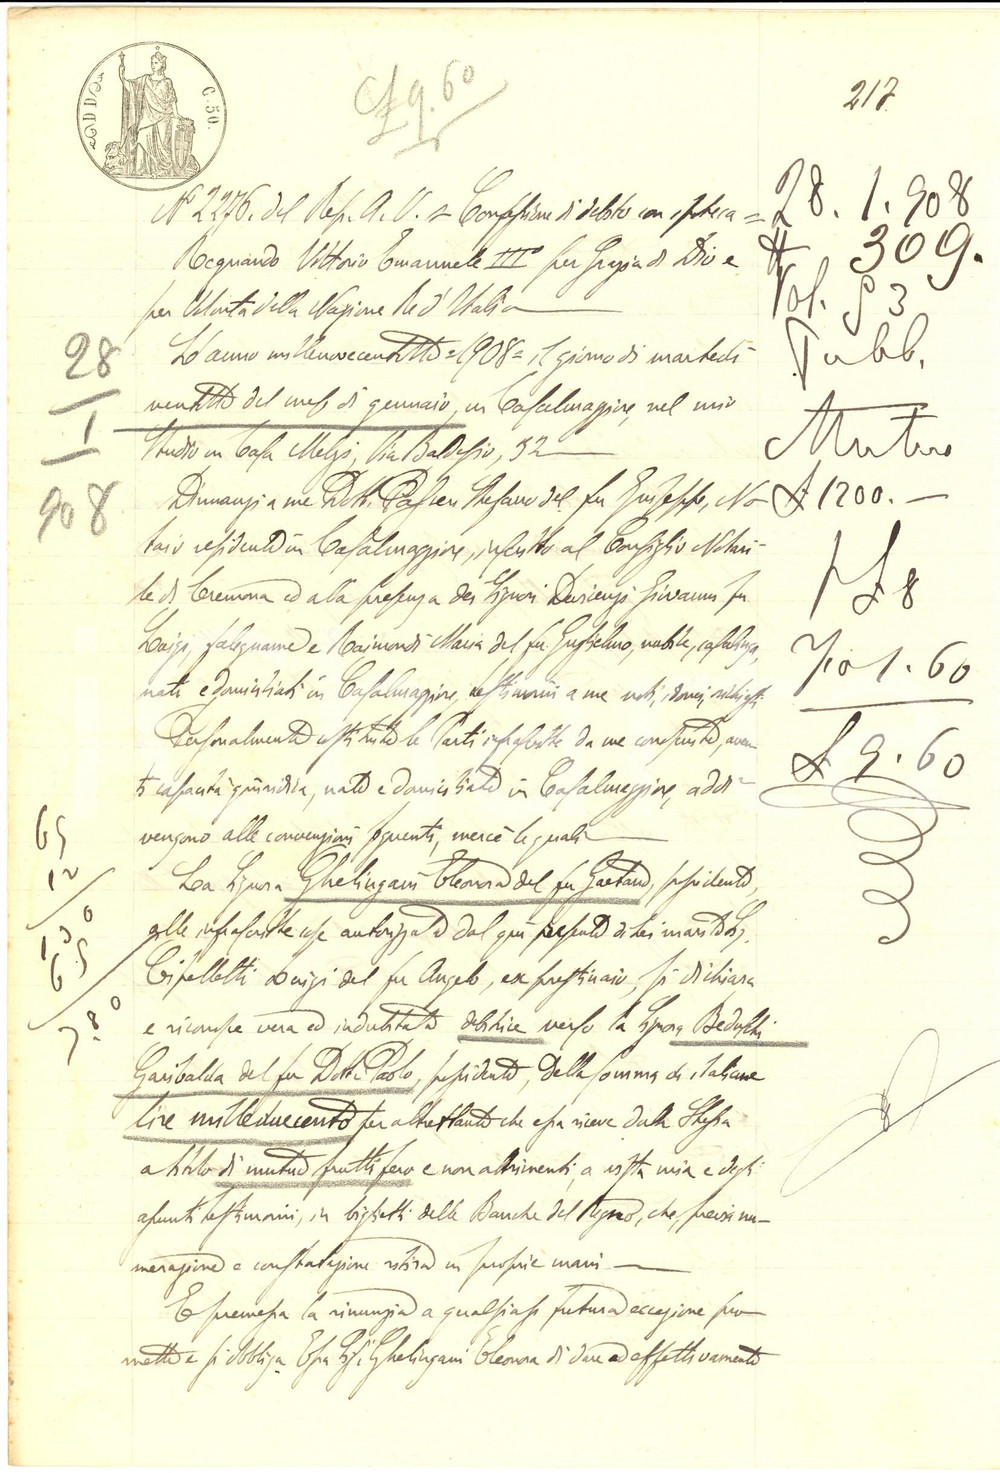 C. 50.
£ 9.60
217
N° 2276. del Rep. A. V. = Confessione di debito con ipoteca =
Regnando Vittorio Emanuele III° per Grazia di Dio e
per Volontà della Nazione Re d'Italia
L'anno millenovecentotto = 1908 = il giorno di martedì
ventotto del mese di gennaio, in Casalmaggiore, nel mio
Studio in Casa Melzi, Via Baldesio, 32
Dinnanzi a me Dott. Stefano del fu Giuseppe, No-
taio residente in Casalmaggiore, inscritto al Consiglio Notari-
le di Cremona ed alla presenza dei Signori Giovanni fu
Luigi, falegname e Raimondi Maria del fu Guglielmo, nubile, casalinga,
nati e domiciliati in Casalmaggiore, testimoni a me noti, idonei, richiesti
Personalmente costituite le Parti infrascritte da me conosciute, aven-
ti capacità giuridica, nate e domiciliate in Casalmaggiore, addi-
vengono alle convenzioni seguenti, mercè le quali
La Signora Ghelingani Eleonora del fu Gaetano, possidente,
alle infrascritte cose autorizzata dal qui presente di lei marito Sig.
Cipelletti Luigi del fu Angelo, ex prestinaio, si dichiara
e riconosce vera ed indubitata debitrice verso la Signora Beduschi
Garibalda del fu Dott. Paolo, possidente, della somma di italiane
lire milleduecento per altrettante che essa riceve dalla Stessa
a titolo di mutuo fruttifero e non altrimenti, a vista mia e degli
assunti testimoni, in biglietti delle Banche del Regno, che, previa nu-
merazione e constatazione ritira in proprie mani
E premessa la rinunzia a qualsiasi futura eccezione pro-
mette e si obbliga Essa Sig. Ghelingani Eleonora di dare ed effettivamente
28
1
908
65
12
130
65
7.80
28. 1. 908
# 309.
Vol. 53
Pubb.
Mutuo
£ 1200. —
£ 8
1.60
£ 9.60